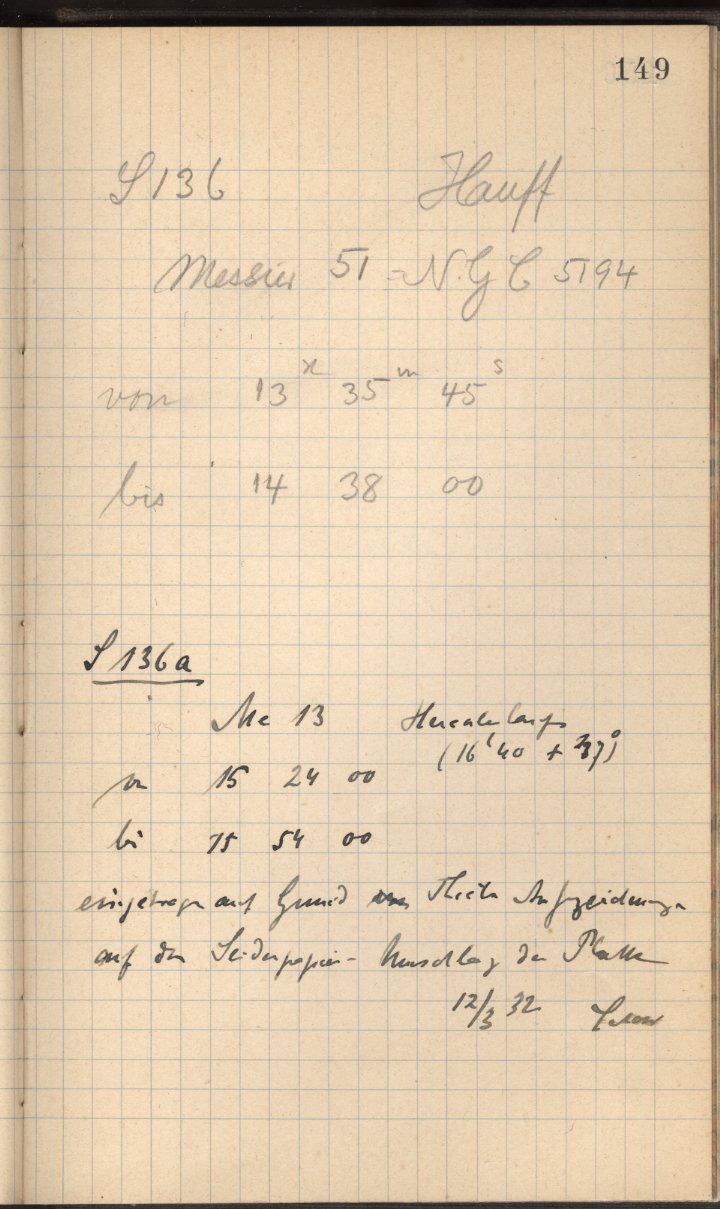 149
S 136 Hauff
Messier 51 = N.G.C 5194
von 13 h 35 m 45 s
bis 14 38 00
S 136a
Me 13
(16 40 + 37)°
von 15 24 00
bis 15 54 00
eingetragen auf Grund Aufzeichnungen
auf dem Seidenpapier-Umschlag der Platte
12/3 32